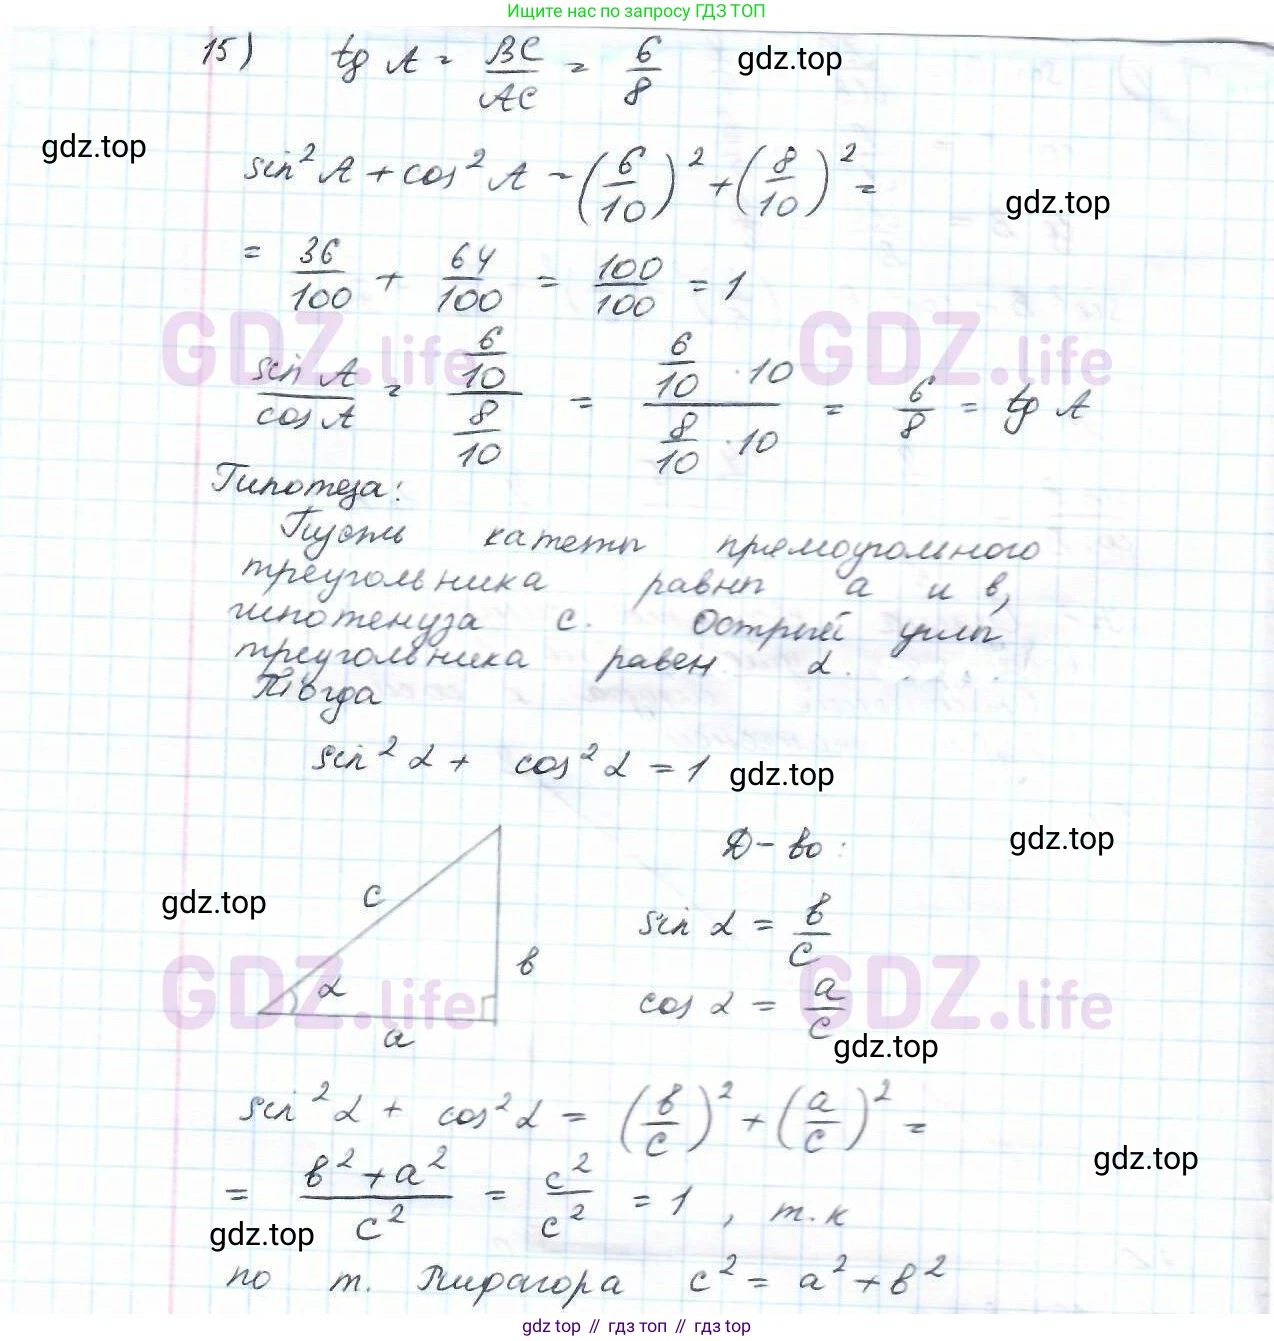 Ищите нас по запросу ГДЗ ТОП
15) tg A = BC/AC = 6/8
gdz.top
gdz.top
sin² A + cos² A = (6/10)² + (8/10)² =
gdz.top
= 36/100 + 64/100 = 100/100 = 1
GDZ.life GDZ.life
sin A / cos A = (6/10)/(8/10) = (6/10 · 10)/(8/10 · 10) = 6/8 = tg A
Гипотеза:
Пусть катеты прямоугольного
треугольника равны a и b,
гипотенуза c. Острый угол
треугольника равен α.
Тогда
sin² α + cos² α = 1
gdz.top
Д-во:
gdz.top
gdz.top
c
sin α = b/c
b
α
GDZ.life GDZ.life
cos α = a/c
a
gdz.top
sin² α + cos² α = (b/c)² + (a/c)² =
gdz.top
= (b² + a²)/c² = c²/c² = 1, т.к
gdz.top
по т. Пифагора c² = a² + b²
gdz top // гдз топ // гдз top